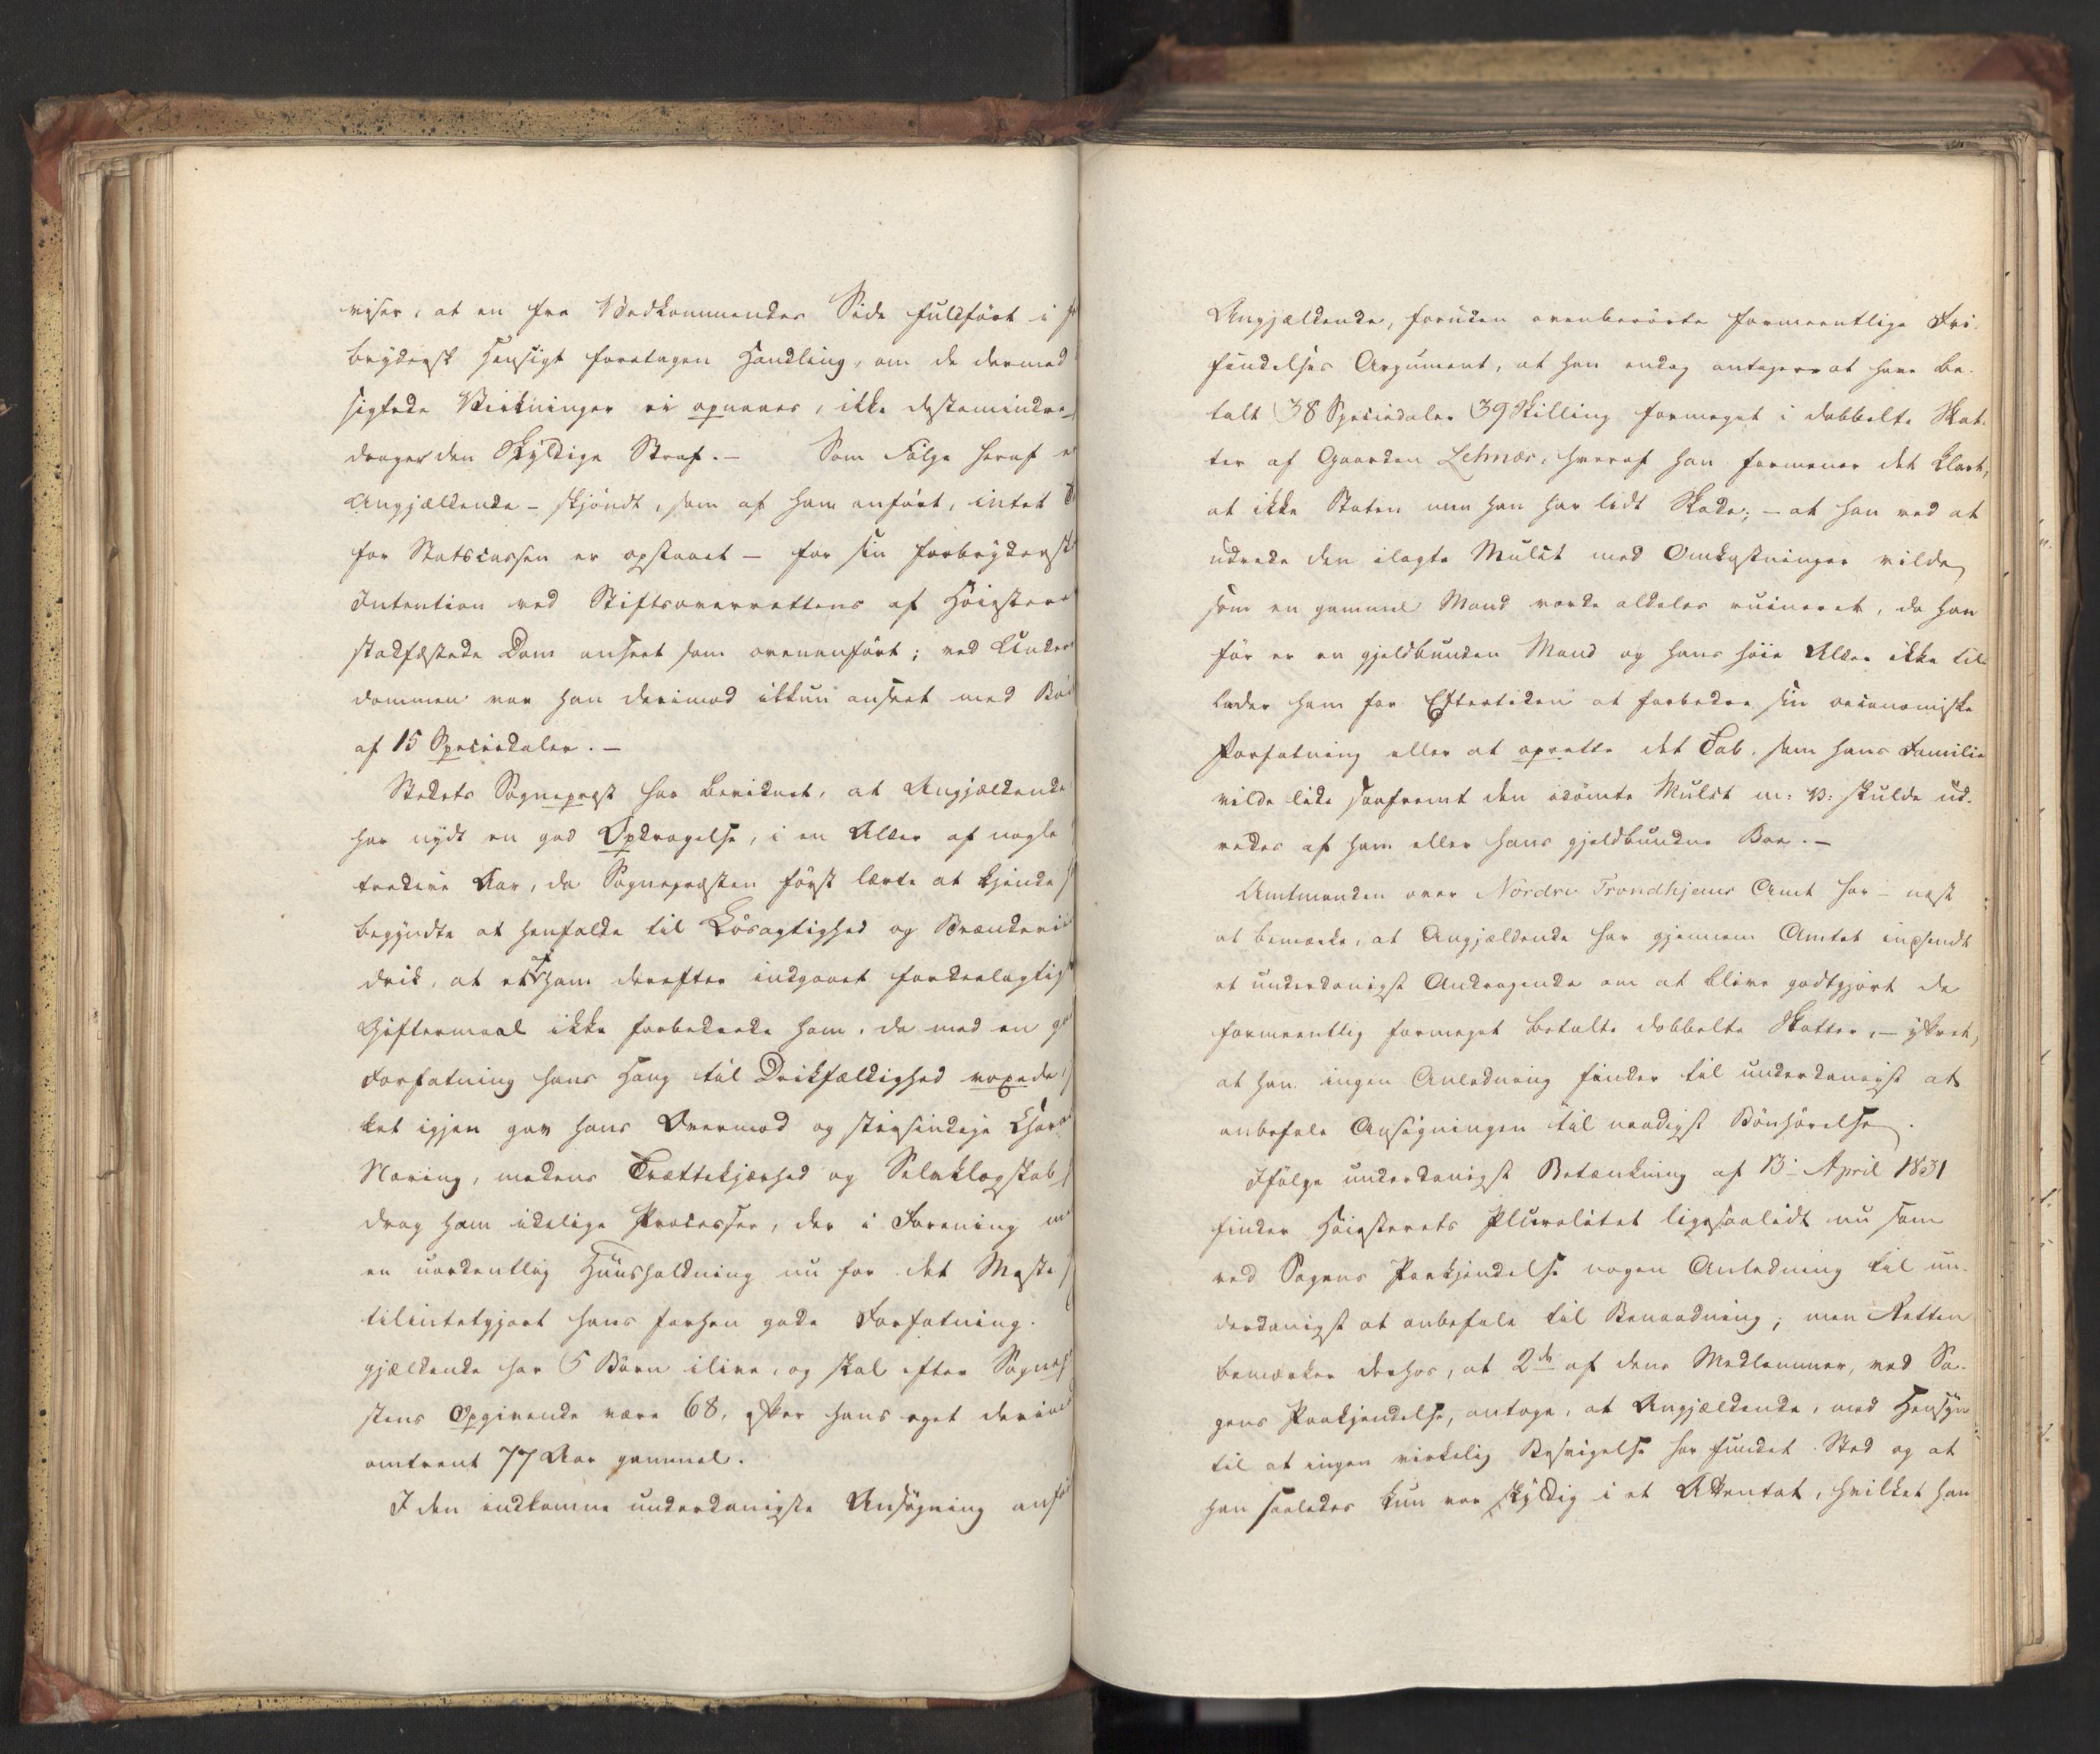 viser, at en fra Vedkommendes Side fuldført i
brydersk Hensigt foretagen Handling, om de dermed
sigtede Virkninger ei opnaaes, ikke destomindre
drager den Skyldige Straf. – Som Følge heraf
Angjældende – skjøndt, som af ham anført, intet
for Statscassen er opstaaet – for sin forbrydersk
Intention ved Stiftsoverrettens af Høiestere
stadfæstede Dom anseet som ovenanført; ved Under
dommen var han derimod ikkun anseet med Bø
af 15 Speciedaler. –
Stedets Sognepræst har bevidnet, at Angjældende
har nydt en god Opdragelse, i en Alder af nogle
tredive Aar, da Sognepræsten først lærte at kjende
begyndte at henfalde til Løsagtighed og Brænderii
drik, at et af ham derefter indgaaet fordeelagtig
Giftermaal ikke forbedrede ham, da med en
Forfatning hans Hang til Drikfældighed voxede,
ket igjen gav hans Overmod og stivsindige Chara
Næring, medens Trættekjærhed og Selvklogskab
drog ham idelige Processer, der i Forening
en uordentlig Huusholdning nu for det Meste
tilintetgjort hans forhen gode Forfatning.
gjældende har 5 Børn ilive, og skal efter Sognep
stens Opgivende være 68, efter hans eget derimod
omtrent 77 Aar gammel.
I den indkomne underdanigste Ansøgning anfø
Angjældende, foruden ovenberørte formeentlige Fri-
findelses Argument, at han endog antages at have be-
talt 38 Speciedaler 39 Skilling formeget i dobbelte Skat-
ter af Gaarden Lehnæs, hvoraf han formener det klart,
at ikke Staten men han har lidt Skade; – at han ved at
udrede den ilagte Mulct med Omkostninger vilde
som en gammel Mand vorde aldeles ruineret, da han
før er en gjeldbunden Mand og hans høie Alder ikke til-
lader ham for Eftertiden at forbedre sin oeconomiske
Forfatning eller at oprette det Tab, som hans Familie
vilde lide saafremt den idømte Mulct m: v: skulde ud-
redes af ham eller hans gjeldbundne Boe. –
Amtmanden over Nordre Trondhjems Amt har – næst
at bemærke, at Angjældende har gjennem Amtet indsendt
et underdanigst Andragende om at blive godtgjort de
formeentlig formeget betalte dobbelte Skatter, – yttret,
at han ingen Anledning finder til underdanigst at
anbefale Ansøgningen til naadigst Bønhørelse.
Ifølge underdanigst Betænkning af 13. April 1831
finder Høiesterets Pluralitet ligesaalidt nu som
ved Sagens Paakjendelse nogen Anledning til un-
derdanigst at anbefale til Benaadning; men Retten
bemærker derhos, at 2de af dens Medlemmer, ved Sa-
gens Paakjendelse, antoge, at Angjældende, med Hensyn
til at ingen virkelig Besvigelse har fundet Sted og at
han saaledes kun var skyldig i et Attentat, hvilket han